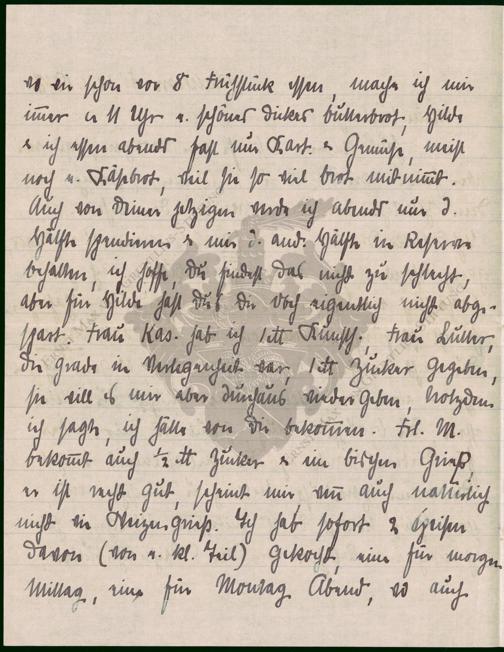 wo wir schon vor 8 Frühstück essen, mache ich mir
immer ca 11 Uhr e. schönes dickes Butterbrot, Hilde
& ich essen abends fast nur Kart. & Gemüse, meist
noch e. Käsebrot, weil sie so viel Brot mitnimmt.
Auch von Deiner jetzigen werde ich abends nur d.
Hälfte spendieren & mir d. and. Hälfte in Reserve
behalten, ich hoffe, Du findest das nicht zu schlecht,
aber für Hilde hast Du's Dir doch eigentlich nicht abge-
spart. Frau Kas. hab ich 1 ℔ Kunsth., Frau Lutter
die grade in Verlegenheit war, 1 ℔ Zucker gegeben,
sie will es mir aber durchaus wiedergeben, trotzdem
ich sagte, ich hätte von Dir bekommen. Frl. M.
bekommt auch ½ ℔ Zucker & ein bischen Grieß,
er ist recht gut, scheint mir wenn auch natürlich
nicht wie Weizengrieß. Ich hab sofort 2 Speisen
davon (von e. kl. Teil) gekocht, eine für morgen
Mittag, eine für Montag Abend, wo auch